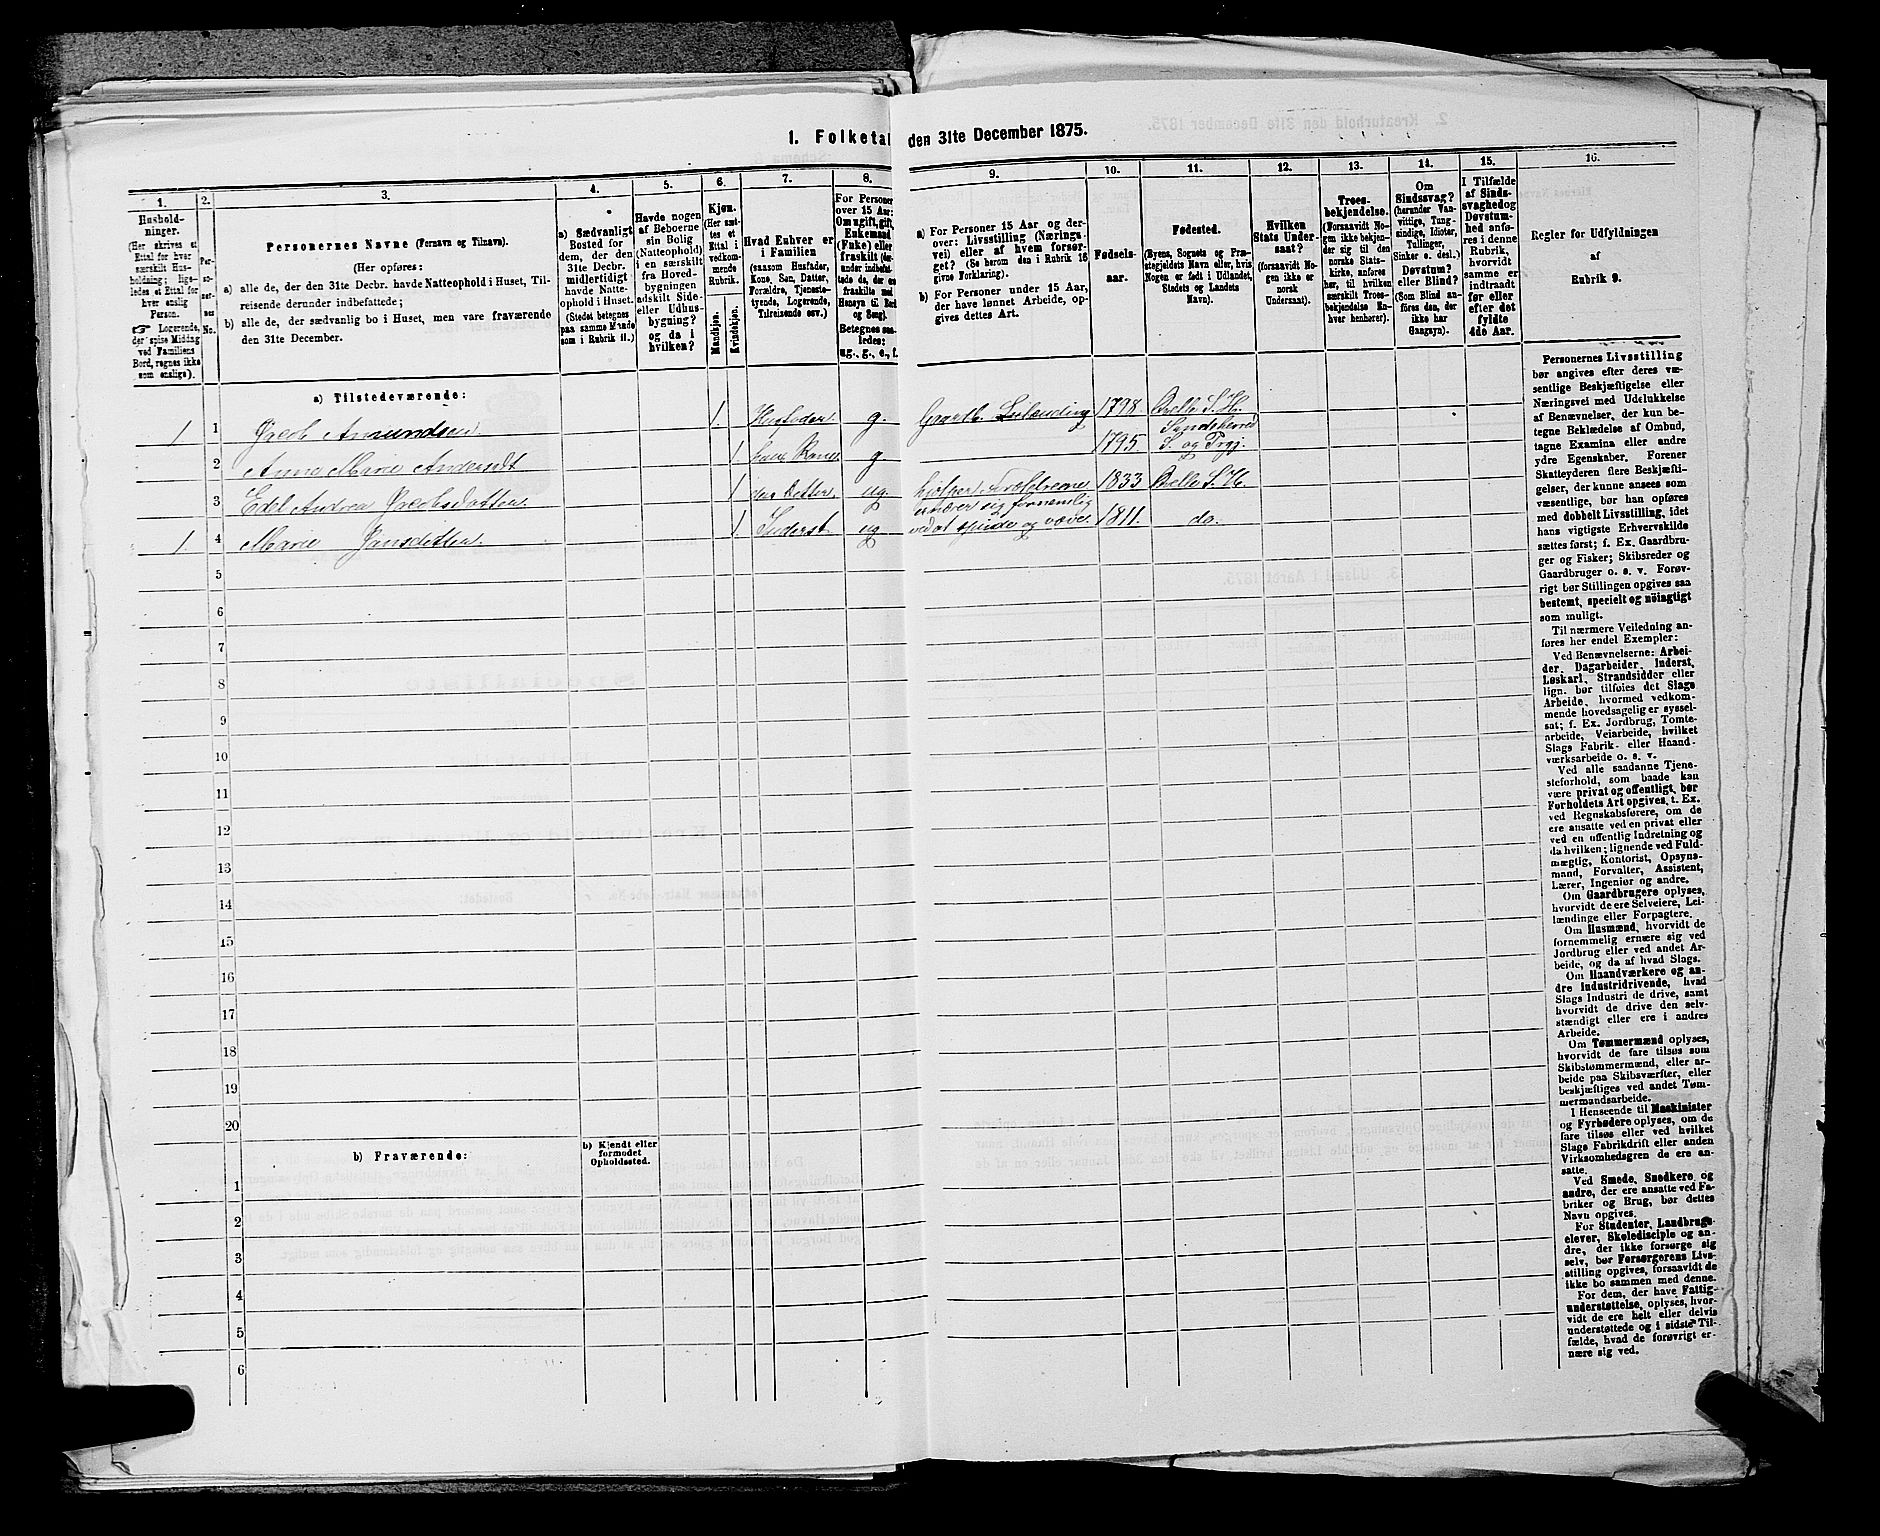 1. Folketal den 31te December 1875.
1. 2. 3. 4. 5. 6. 7. 8. 9. 10. 11. 12. 13. 14. 15. 16.
Hushold-
ninger.
(Her skrives et
Ettal for hver
særskilt Hus-
holdning; lige-
ledes et Ettal for
hver enslig
Person.
☞ Logerende,
der spise Middag
ved Familiens
Bord, regnes ikke
som enslige).
Per-
so-
ner-
nes
No.
Personernes Navne (Fornavn og Tilnavn).
(Her opføres:
a) alle de, der den 31te Decbr. havde Natteophold i Huset, Til-
reisende derunder indbefattede;
b) alle de, der sædvanlig bo i Huset, men vare fraværende
den 31te December.
a) Sædvanligt
Bosted for
dem, der den
31te Decbr.
midlertidigt
havde Natte-
ophold i Huset.
(Stedet betegnes
paa samme Maade
som i Rubrik 11.)
Havde nogen
af Beboerne
sin Bolig
(Natteophold)
i en særskilt
fra Hoved-
bygningen
adskilt Side-
eller Udhus-
bygning?
og da i
hvilken?
Kjøn.
(Her sæt-
tes et
Ettal i
vedkom-
mende
Rubrik.
Mandkjøn.
Kvindekjøn.
Hvad Enhver er
i Familien
(saasom Husfader,
Kone, Søn, Datter,
Forældre, Tjeneste-
tyende, Logerende,
Tilreisende osv.)
For Personer
over 15 Aar:
Om ugift, gift,
Enkemand
(Enke) eller
fraskilt (der-
under indbefat-
tede de, der ere
fraskilte med
Hensyn til Bord
og Seng).
Betegnes saa-
ledes:
ug., g., e., f.
a) For Personer 15 Aar og der-
over: Livsstilling (Nærings-
vei) eller af hvem forsør-
get? (Se herom den i Rubrik 16
givne Forklaring).
b) For Personer under 15 Aar,
der have lønnet Arbeide, op-
gives dettes Art.
Fødsels-
aar.
Fødested.
(Byens, Sognets og Præ-
stegjeldets Navn eller, hvis
Nogen er født i Udlandet,
Stedets og Landets
Navn).
Hvilken
Stats Under-
saat?
(forsaavidt No-
gen ikke er
norsk
Undersaat).
Troes-
bekjendelse.
(Forsaavidt No-
gen ikke bekjen-
der sig til den
norske Stats-
kirke, anføres
her, til hvilken
særskilt Troes-
bekjendelse En-
hver henhører).
Om
Sindssvag?
(herunder Van-
vittige, Tung-
sindige, Idioter,
Tullinger,
Sinker o. desl.)
Døvstum?
eller Blind?
(Som Blind an-
føres den, der
ikke har
Gangsyn).
I Tilfælde
af Sinds-
svaghed og
Døvstum-
hed anfø-
res i denne
Rubrik,
hvorvidt
samme er
indtraadt
før eller
efter det
fyldte
4de Aar.
Regler for Udfyldningen
af
Rubrik 9.
a) Tilstedeværende:
1 1 Jacob Amundsen. 1. Husfader g. Gaardb. 1798 S. H.
2 Anne Marie Andersdt 1. hans Kone g. 1795. Sandeherred S. og Prgj.
3 Edel Andrea Jacobsdatter 1 deres Datter. ug. hjelper Forældrene 1833 S. H.
1 4 Marie Jansdatter. 1. Inderst ug ernærer sig fornemlig
ved at spinde og væve. 1811. do.
5
6
7
8
9
10
11
12
13
14
15
16
17
18
19
20
b) Fraværende:
b) Kjendt eller
formodet
Opholdssted.
1
2
3
4
5
6
Personernes Livsstilling
bør angives efter deres væ-
sentlige Beskjæftigelse eller
Næringsvei med Udelukkelse
af Benævnelser, der kun be-
tegne Beklædelse af Ombud,
tagne Examina eller andre
ydre Egenskaber. Forener
Skatteyderen flere Beskjæfti-
gelser, der kunne ansees som
væsentlige, bør han opføres
med dobbelt Livsstilling, idet
hans vigtigste Erhvervskilde
sættes først; f. Ex. Gaardbru-
ger og Fisker; Skibsreder og
Gaardbruger o. s. v. Forøv-
rigt bør Stillingen opgives saa
bestemt, specielt og nöiagtigt
som muligt.
Til nærmere Veiledning an-
føres her endel Exempler:
Ved Benævnelserne: Arbei-
der, Dagarbeider, Inderst,
Løskarl, Strandsidder eller
lign. bør tilføies det Slags
Arbeide, hvormed vedkom-
mende hovedsagelig er syssel-
sat; f. Ex. Jordbrug, Tomte-
arbeide, Veiarbeide, hvilket
Slags Fabrik- eller Haand-
værksarbeide o. s. v.
Ved alle saadanne Tjene-
steforhold, som baade kan
være privat og offentligt, bør
Forholdets Art opgives, t. Ex.
ved Regnskabsførere, om de
ere ansatte ved en privat eller
ved en offentlig Indretning og
da hvilken; lignende ved Fuld-
mægtig, Kontorist, Opsyns-
mand, Forvalter, Assistent,
Lærer, Ingeniør og andre.
Om Gaardbrugere oplyses,
hvorvidt de ere Selveiere, Lei-
lændinge eller Forpagtere.
Om Husmænd, hvorvidt de
fornemmelig ernære sig ved
Jordbrug eller ved andet Ar-
beide, og da af hvad Slags.
Om Haandværkere og an-
dre Industridrivende, hvad
Slags Industri de drive, samt
hvorvidt de drive den selv-
stændigt eller ere i andres
Arbeide.
Om Tømmermænd oplyses,
hvorvidt de fare tilsøs som
Skibstømmermænd, eller ar-
beide paa Skibsværfter, eller
beskjæftiges ved andet Tøm-
mermandsarbeide.
I Henseende til Maskinister
og Fyrbødere oplyses, om de
fare tilsøs eller ved hvilket
Slags Fabrikdrift eller anden
Virksomhedsgren de ere an-
satte.
Ved Smede, Snedkere og
andre, der ere ansatte ved Fa-
briker og Brug, bør dettes
Navn opgives.
For Studenter, Landbrugs-
elever, Skoledisciple og an-
dre, der ikke forsørge sig
selv, bør Forsørgerens Livs-
stilling opgives, forsaavidt de
ikke bo sammen med denne.
For dem, der have Fattig-
understøttelse, oplyses, hvor-
vidt de ere helt eller delvis
understøttede og i sidste Til-
fælde, hvad de forøvrigt er-
nære sig ved.